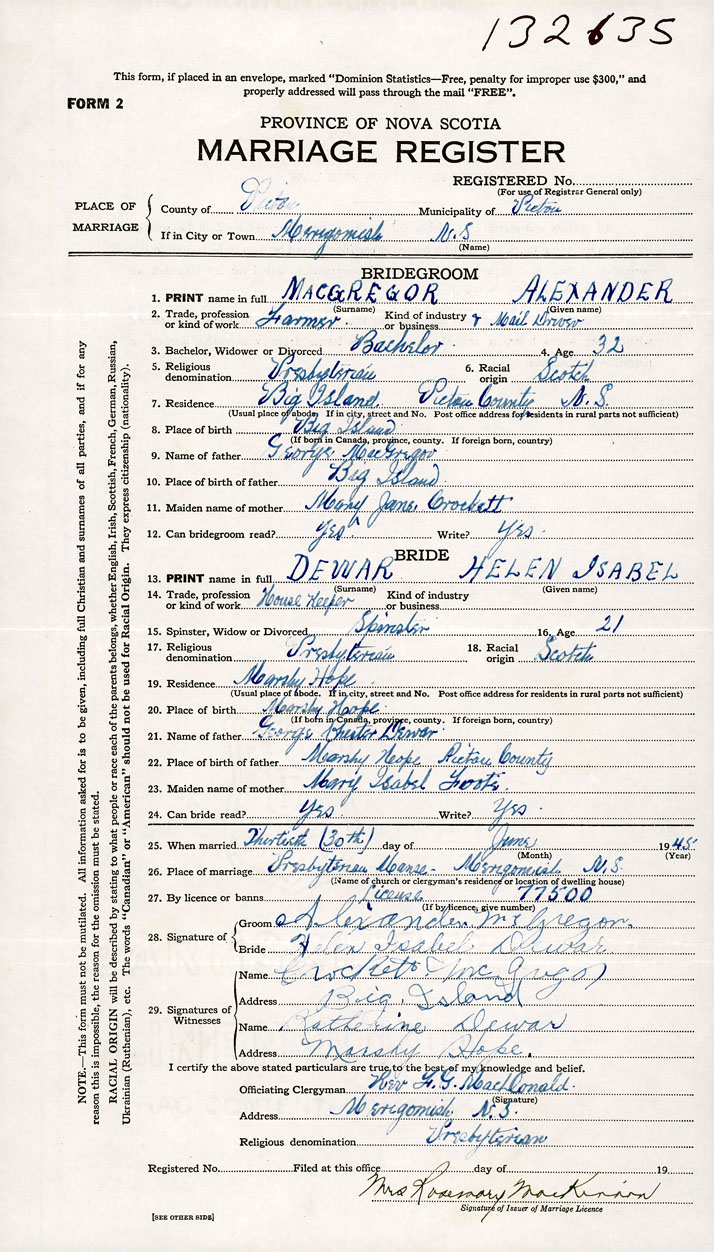 132635
This form, if placed in an envelope, marked “Dominion Statistics—Free, penalty for improper use $300,” and
properly addressed will pass through the mail “FREE”.
FORM 2
PROVINCE OF NOVA SCOTIA
MARRIAGE REGISTER
REGISTERED No.
(For use of Registrar General only)
PLACE OF MARRIAGE
County of Pictou Municipality of Pictou
If in City or Town Merigomish N.S
(Name)
BRIDEGROOM
1. PRINT name in full MACGREGOR ALEXANDER
(Surname) (Given name)
2. Trade, profession or kind of work Farmer. Kind of industry or business & Mail Driver
3. Bachelor, Widower or Divorced Bachelor 4. Age 32
5. Religious denomination Presbyterian 6. Racial origin Scotch
7. Residence Big Island Pictou County N.S
(Usual place of abode. If in city, street and No. Post office address for residents in rural parts not sufficient)
8. Place of birth Big Island
(If born in Canada, province, county. If foreign born, country)
9. Name of father George MacGregor
10. Place of birth of father Big Island
11. Maiden name of mother Mary Jane Crockett
12. Can bridegroom read? Yes. Write? Yes.
BRIDE
13. PRINT name in full DEWAR HELEN ISABEL
(Surname) (Given name)
14. Trade, profession or kind of work House Keeper Kind of industry or business
15. Spinster, Widow or Divorced Spinster 16. Age 21
17. Religious denomination Presbyterian 18. Racial origin Scotch
19. Residence Marshy Hope
(Usual place of abode. If in city, street and No. Post office address for residents in rural parts not sufficient)
20. Place of birth Marshy Hope
(If born in Canada, province, county. If foreign born, country)
21. Name of father George Chester Dewar
22. Place of birth of father Marshy Hope Pictou County
23. Maiden name of mother Mary Isabel Foote.
24. Can bride read? Yes. Write? Yes.
25. When married Thirtieth (30th) day of June 1945
(Month) (Year)
26. Place of marriage Presbyterian Manse - Merigomish N.S.
(Name of church or clergyman's residence or location of dwelling house)
27. By licence or banns License 77500
(If by licence, give number)
28. Signature of
Groom Alexander McGregor.
Bride Helen Isabel Dewar
29. Signatures of Witnesses
Name Crockett McGregor
Address Big Island
Name Katherine Dewar
Address Marshy Hope.
I certify the above stated particulars are true to the best of my knowledge and belief.
Officiating Clergyman Rev F. G. MacDonald.
(Signature)
Address Merigomish N.S.
Religious denomination Presbyterian
Registered No. Filed at this office day of 19
Mrs Rosemary MacKinnon
Signature of Issuer of Marriage Licence
[SEE OTHER SIDE]
NOTE.—This form must not be mutilated. All information asked for is to be given, including full Christian and surnames of all parties, and if for any
reason this is impossible, the reason for the omission must be stated.
RACIAL ORIGIN will be described by stating to what people or race each of the parents belongs, whether English, Irish, Scottish, French, German, Russian,
Ukrainian (Ruthenian), etc. The words “Canadian” or “American” should not be used for Racial Origin. They express citizenship (nationality).